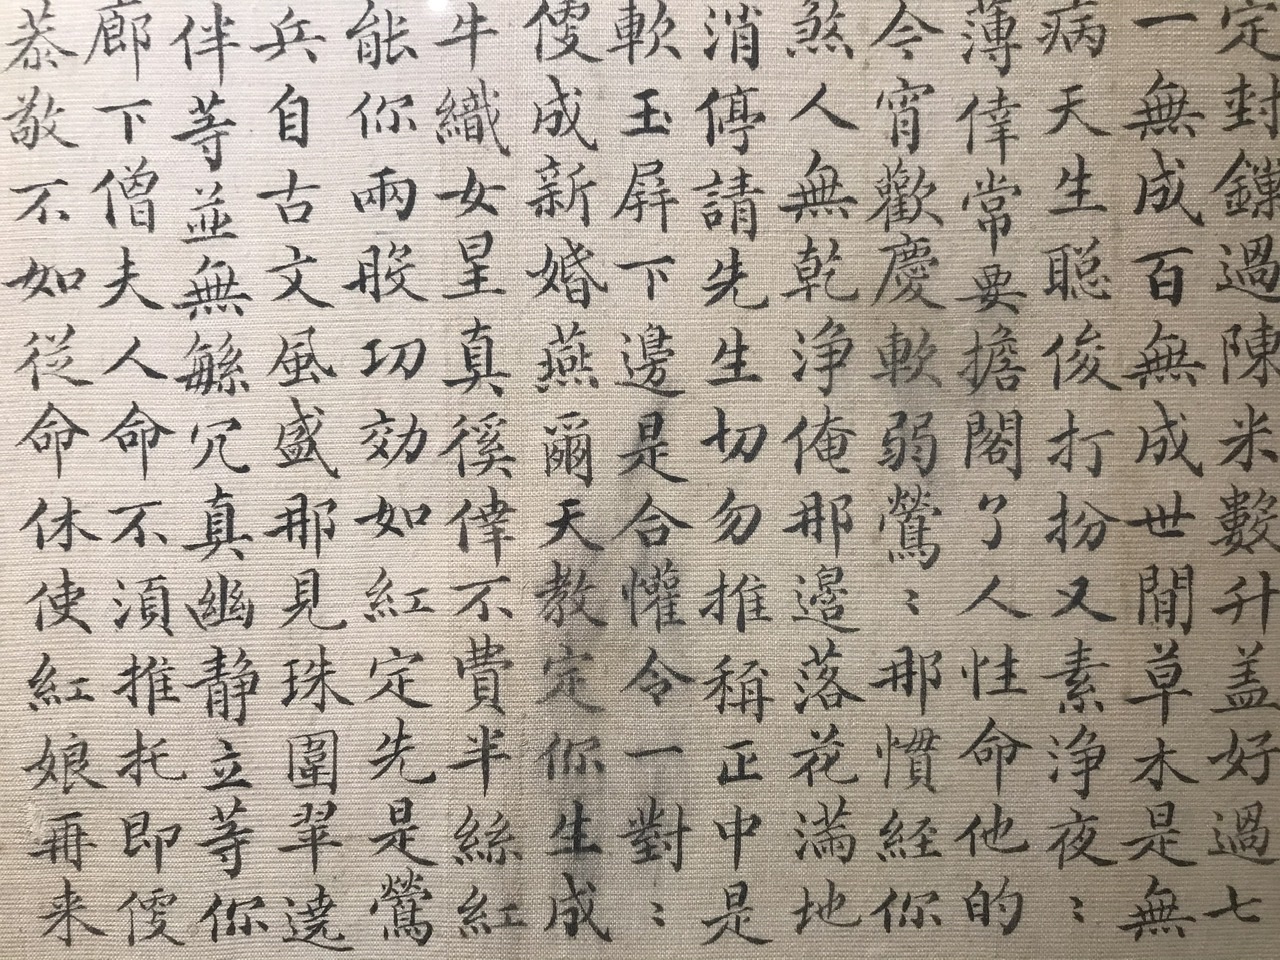 定封鏁過陳米數升盖好過七
一無成百無成世間草木是無
病天生聡俊打扮又素浄夜〻
薄倖常要擔閣了人性命他的
今宵歡慶軟弱鶯〻那慣経你
煞人無乾浄俺那邉落花滿地
消停請先生切勿推稱正中是
軟玉屏下邊是合懽令一對〻
便成新婚燕爾天教定你生成
牛織女星真徯倖不費半絲紅
能你兩股功効如紅定先是鶯
兵自古文風盛那見珠圍翠遶
伴等並無繁冗真幽靜立等你
廊下僧夫人命不湏推托即便
恭敬不如從命休使紅娘再来